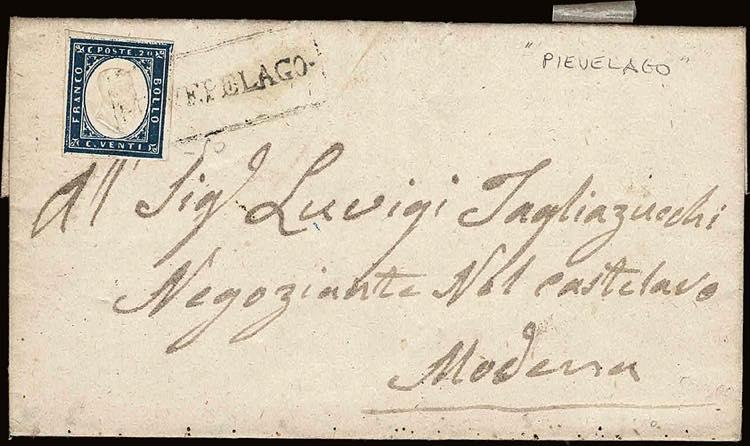 C. POSTE. 20
FRANCO
BOLLO
C. VENTI
PIEVEPELAGO.
"PIEVELAGO"
All Sigr Luvigi Tagliazucchi
Negoziante Nel castelavo
Modena